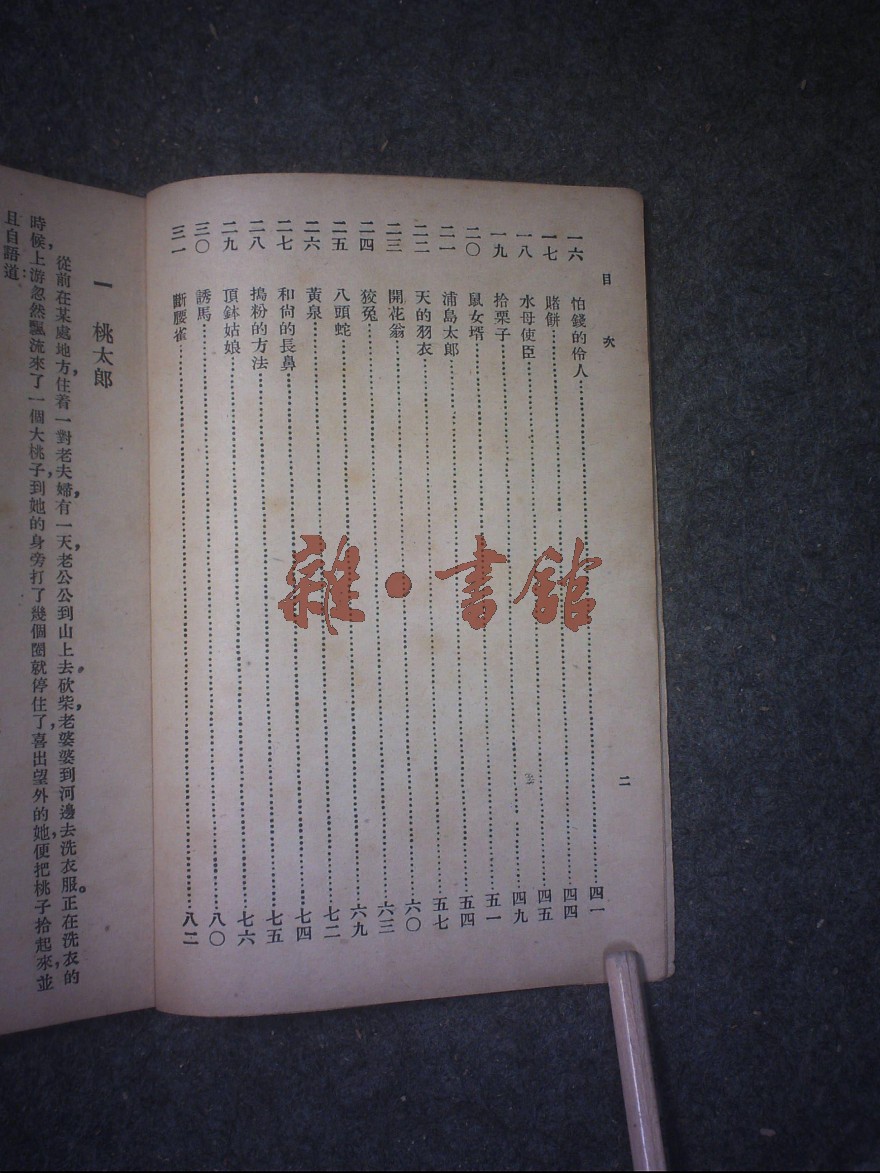 目次 二
一六 怕錢的伶人……四一
一七 賭餅……四四
一八 水母使臣……四五
一九 拾栗子……四九
二〇 鼠女壻……五一
二一 浦島太郎……五四
二二 天的羽衣……五七
二三 開花翁……六〇
二四 狡兔……六三
二五 八頭蛇……六九
二六 黃泉……七二
二七 和尙的長鼻……七四
二八 搗粉的方法……七五
二九 頂鉢姑娘……七六
三〇 誘馬……八〇
三一 斷腰雀……八二
一 桃太郎
從前在某處地方，住着一對老夫婦，有一天，老公公到山上去砍柴，老婆婆到河邊去洗衣服。正在洗衣的
時候，上游忽然飄流來了一個大桃子，到她的身旁打了幾個圈就停住了，喜出望外的她，便把桃子拾起來，並
且自語道：
雜•書館